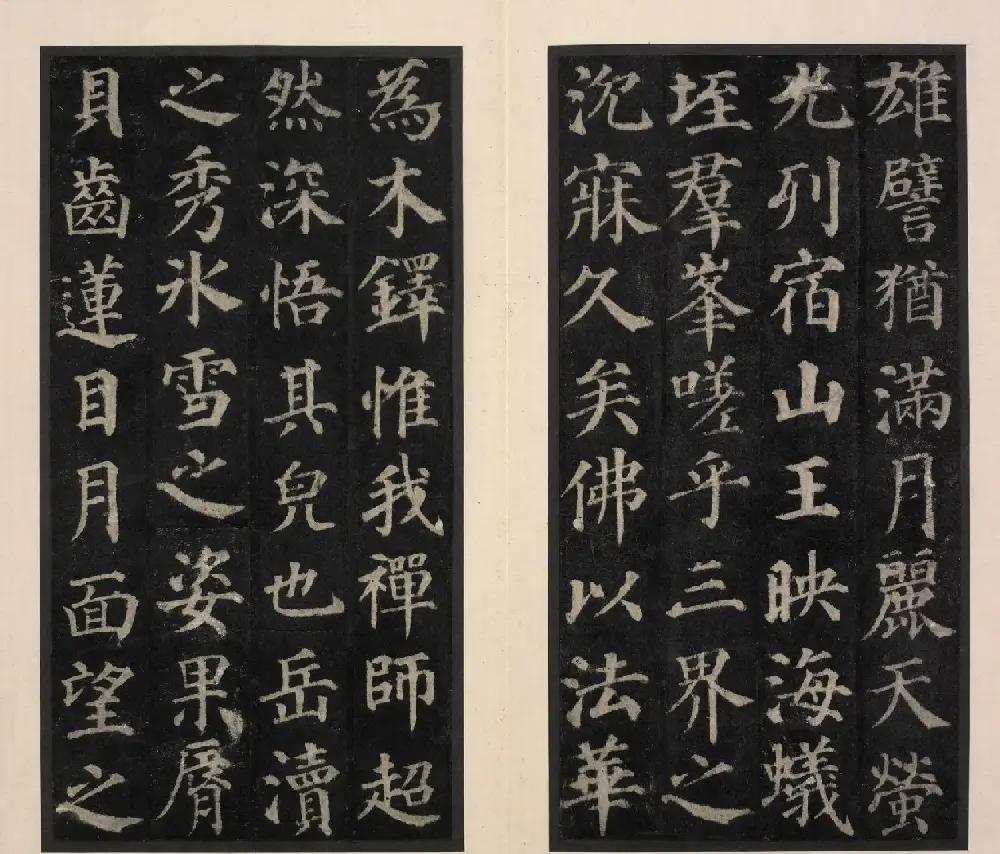 雄譬猶滿月麗天螢
光列宿山王映海蟻
垤羣峯嗟乎三界之
沉寐久矣佛以法華
為木鐸惟我禪師超
然深悟其皃也岳瀆
之秀冰雪之姿果脣
貝齒蓮目月面望之